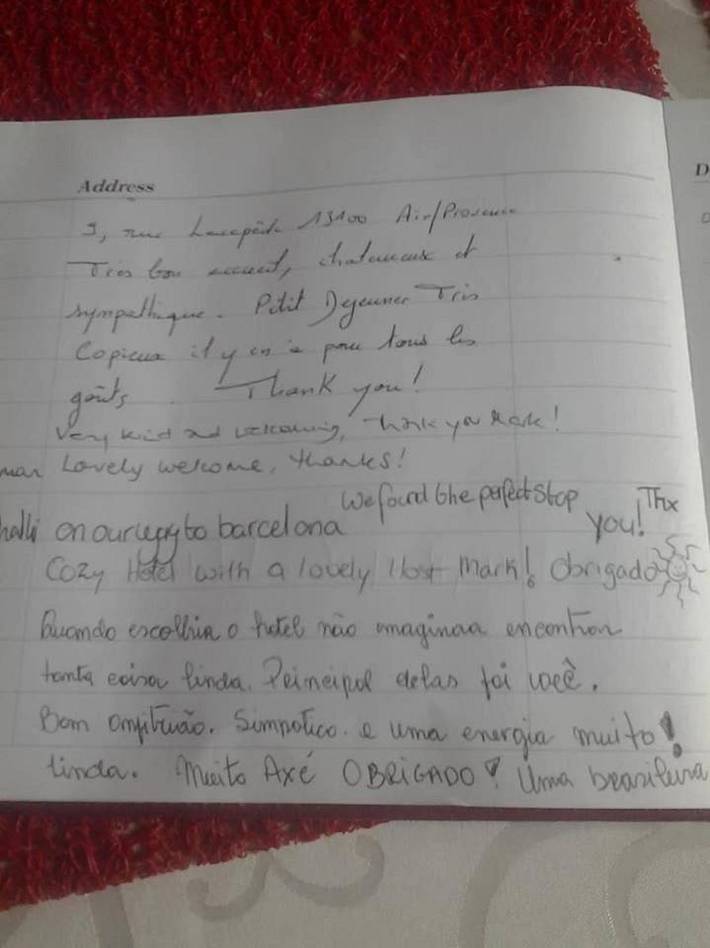 Address
D
9, rue Lacepède 13100 Aix/Provence
Très bon accueil, chaleureux et
sympathique. Petit Dejeuner Très
Copieux il y en a pour tous les
goûts. Thank you!
Very kind and welcoming, thank you Mark!
man Lovely welcome, thanks!
We found the perfect stop
on our way to barcelona you! Thx
Cozy Hotel with a lovely Host Mark! Obrigado
Quando escolhia o hotel não imaginava encontrar
tanta coisa linda. Principal delas foi você.
Bom anfitrião. Simpatico. e uma energia muito!
linda. Muito Axé OBRIGADO! Uma brasileira